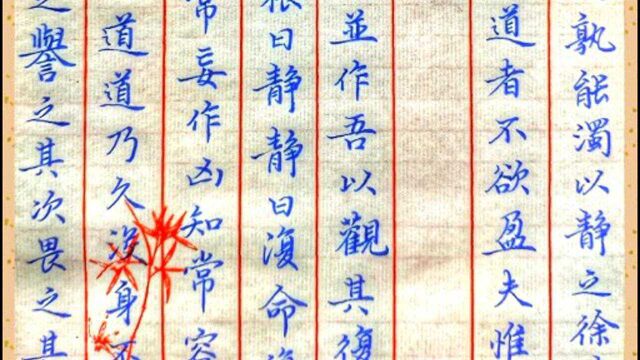 孰能濁以静之徐
道者不欲盈夫惟
並作吾以觀其復
根曰静静曰復命
常妄作凶知常容
道道乃久没身不
之譽之其次畏之其